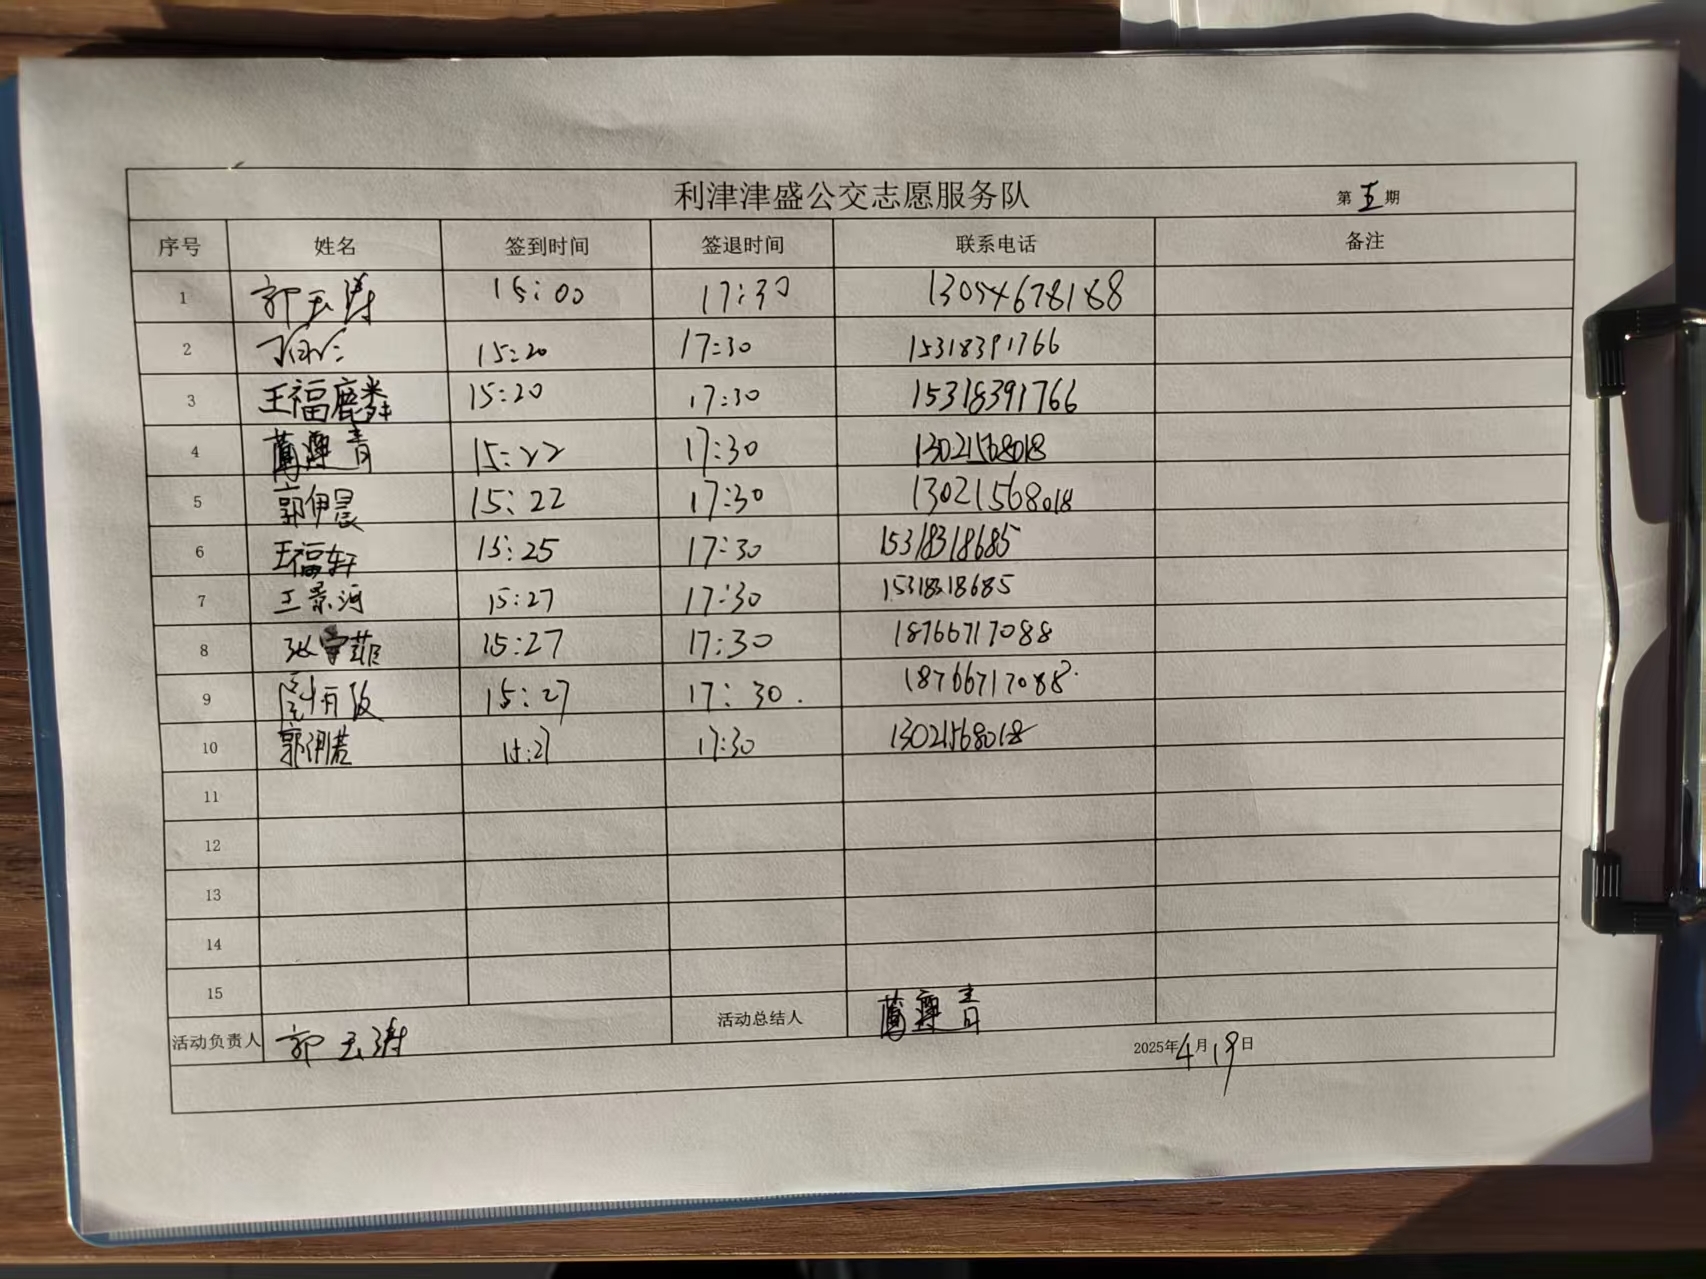 利津津盛公交志愿服务队 第五期
序号 姓名 签到时间 签退时间 联系电话 备注
1 郭玉涛 15:00 17:30 13054678188
2 15:20 17:30 15318391766
3 王福麟 15:20 17:30 15318391766
4 蔺遵青 15:22 17:30 13021568018
5 郭伊晨 15:22 17:30 13021568018
6 王福轩 15:25 17:30 15318318685
7 王景河 15:27 17:30 15318318685
8 张 菲 15:27 17:30 18766717088
9 15:27 17:30. 18766717088
10 郭伊若 15:27 17:30 13021568018
11
12
13
14
15
活动负责人 郭玉涛 活动总结人 蔺遵青
2025年4月19日